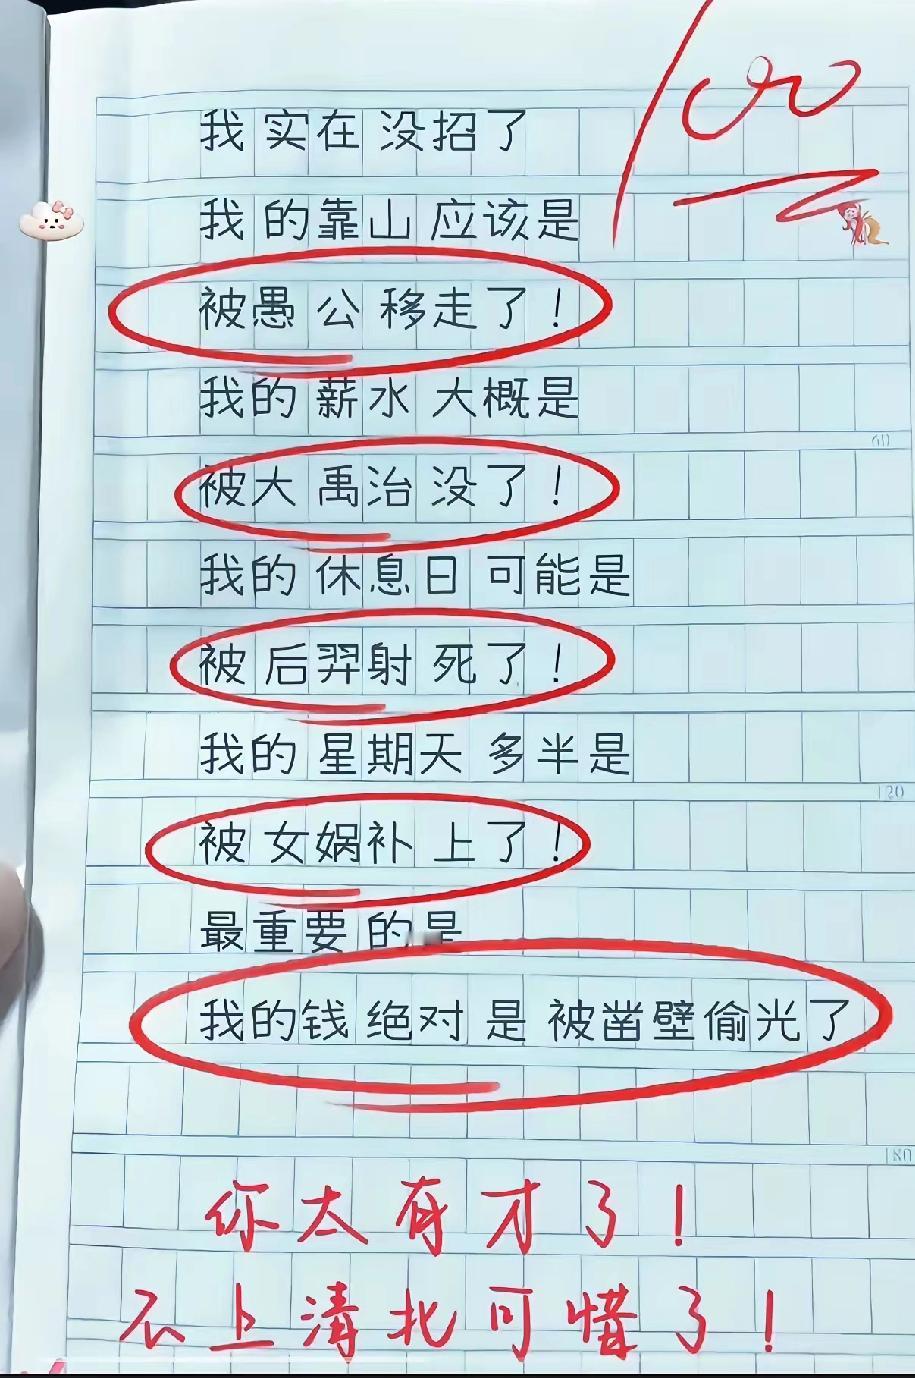 100
我实在没招了
我的靠山应该是
被愚公移走了！
我的薪水大概是
60
被大禹治没了！
我的休息日可能是
被后羿射死了！
我的星期天多半是
120
被女娲补上了！
最重要的是
我的钱绝对是被凿壁偷光了
180
你太有才了！
不上清北可惜了！